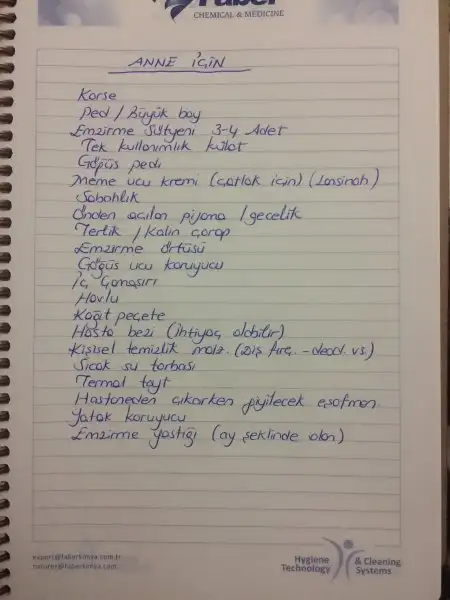 Faber
CHEMICAL & MEDICINE
ANNE İÇİN
Korse
Ped / Büyük boy
Emzirme Sütyeni 3-4 Adet
Tek kullanımlık külot
Göğüs pedi
Meme ucu kremi (çatlak için) (Lansinoh)
Sabahlık
Önden açılan pijama / gecelik
Terlik / Kalın çorap
Emzirme örtüsü
Göğüs ucu koruyucu
İç Çamaşırı
Havlu
Kağıt peçete
Hasta bezi (ihtiyaç olabilir)
Kişisel temizlik malz. (Diş fırç. - deod. vs.)
Sıcak su torbası
Termal tayt
Hastaneden çıkarken giyilecek eşofman
Yatak koruyucu
Emzirme yastığı (ay şeklinde olan)
export@faberkimya.com.tr
Hygiene & Cleaning
Technology Systems